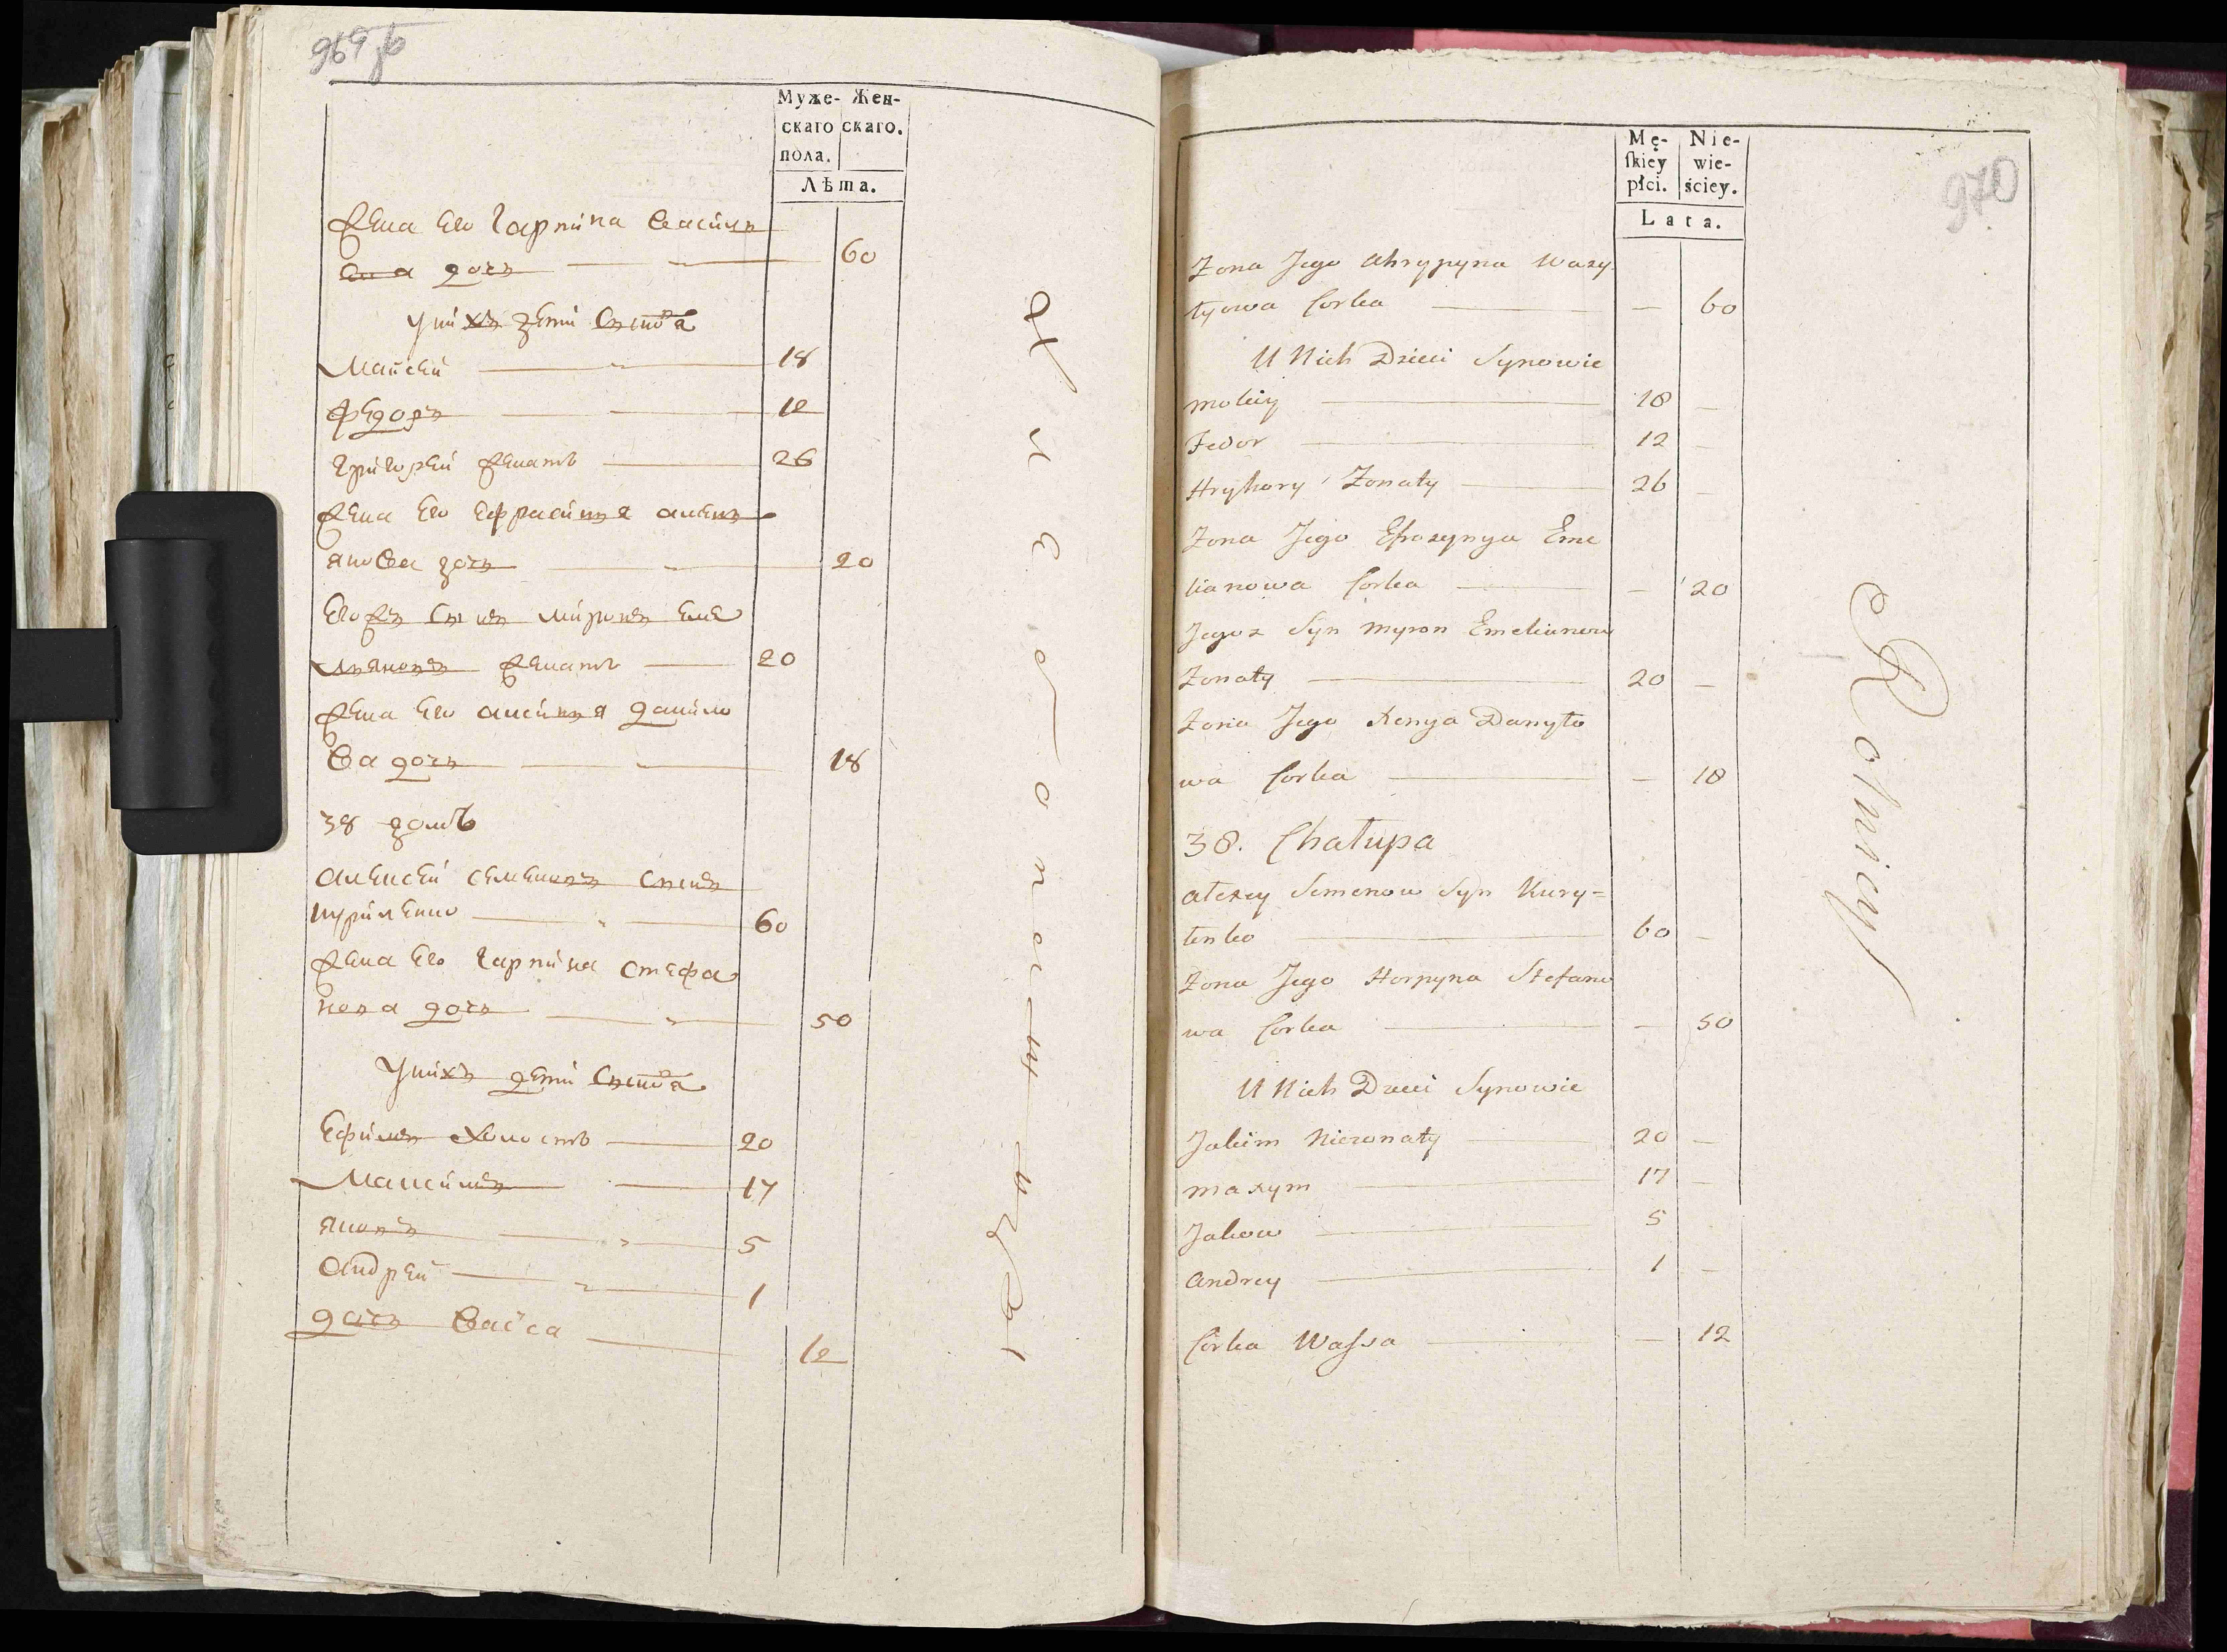 969 об
Муже- Жен-
скаго скаго.
пола.
Лѣта.
жена его гарпина василь
ева дочь 60
У них дети Сынов'я
Мойсей 18
Федоръ 12
Григорей женатъ 26
жена его Ефросиния амель
янова дочь 20
Егожъ Сынъ Миронъ Еме
льяновъ женатъ 20
жена его аксиния данило
ва дочь 18
38 домъ
алексей семеновъ сынъ
куриленко 60
жена его гарпина стефа
нова дочь 50
У нихъ дети Сынов'я
Ефимъ холостъ 20
Максимъ 17
яковъ 5
андрей 1
дочь Васса 12
970
Mę- Nie-
ſkiey wie-
płci. ściey.
Lata.
Zona Jego Ahrypyna Wasy
lyowa Corka — 60
U Nich Dzieci Synowie
Mokiy 18 —
Fedor 12 —
Hryhory Zonaty 26 —
Zona Jego Efrozynya Eme
lianowa Corka — 20
Jegoz Syn Myron Emelianow
Zonaty 20 —
Zona Jego Xenya Danyło
wa Corka — 18
38. Chałupa
alexey Semenow Syn Kury=
lenko 60 —
Zona Jego Horpyna Stefano
wa Corka — 50
U Nich Dzieci Synowie
Jakim Niezonaty 20 —
Maxym 17 —
Jakow 5 —
Andrey 1 —
Corka Waſsa — 12
Rolnicy